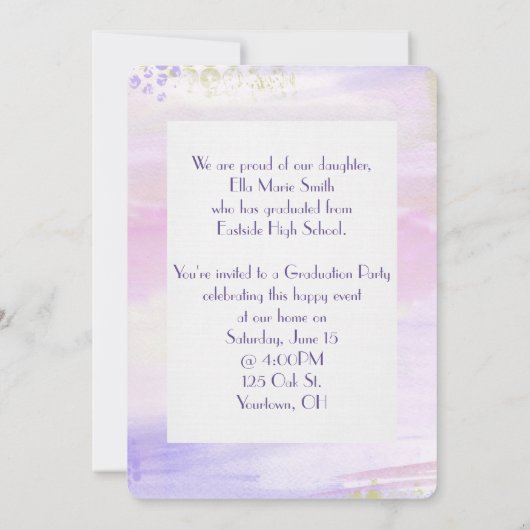 We are proud of our daughter,
Ella Marie Smith
who has graduated from
Eastside High School.
You're invited to a Graduation Party
celebrating this happy event
at our home on
Saturday, June 15
@ 4:00PM
125 Oak St.
Yourtown, OH